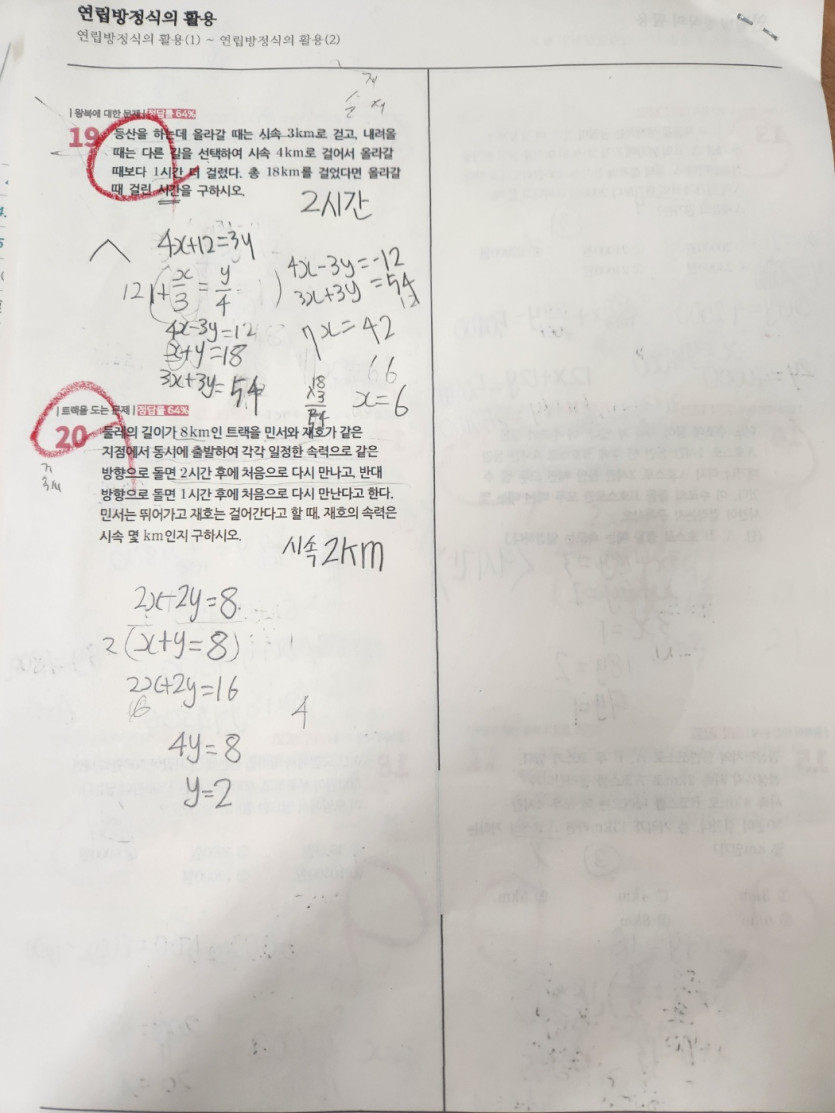 연립방정식의 활용
연립방정식의 활용(1) ~ 연립방정식의 활용(2)
| 왕복에 대한 문제 | 정답률 64%
19 등산을 하는데 올라갈 때는 시속 3km로 걷고, 내려올
때는 다른 길을 선택하여 시속 4km로 걸어서 올라갈
때보다 1시간 더 걸렸다. 총 18km를 걸었다면 올라갈
때 걸린 시간을 구하시오.
2시간
4x+12=3y
12(1+x/3=y/4)
4x-3y=12
x+y=18
3x+3y=54
4x-3y=-12
3x+3y=54
7x=42
x=6
18
×3
54
| 트랙을 도는 문제 | 정답률 64%
20 둘레의 길이가 8km인 트랙을 민서와 재호가 같은
지점에서 동시에 출발하여 각각 일정한 속력으로 같은
방향으로 돌면 2시간 후에 처음으로 다시 만나고, 반대
방향으로 돌면 1시간 후에 처음으로 다시 만난다고 한다.
민서는 뛰어가고 재호는 걸어간다고 할 때, 재호의 속력은
시속 몇 km인지 구하시오.
시속 2km
2x-2y=8
2(x+y=8)
2x+2y=16
4
4y=8
y=2